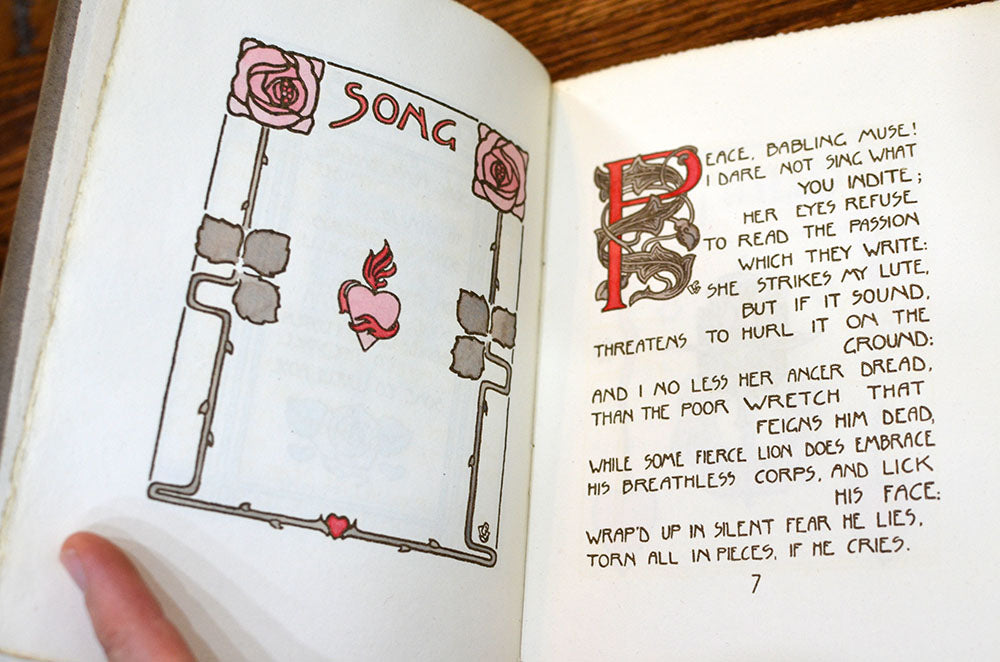 SONG
PEACE, BABLING MUSE!
I DARE NOT SING WHAT
YOU INDITE;
HER EYES REFUSE
TO READ THE PASSION
WHICH THEY WRITE:
SHE STRIKES MY LUTE,
BUT IF IT SOUND,
THREATENS TO HURL IT ON THE
GROUND:
AND I NO LESS HER ANGER DREAD,
THAN THE POOR WRETCH THAT
FEIGNS HIM DEAD,
WHILE SOME FIERCE LION DOES EMBRACE
HIS BREATHLESS CORPS, AND LICK
HIS FACE:
WRAP'D UP IN SILENT FEAR HE LIES,
TORN ALL IN PIECES, IF HE CRIES.
7